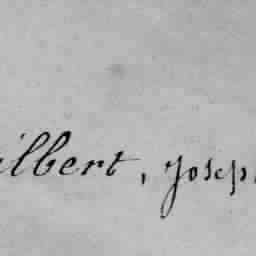 ilbert, Josep